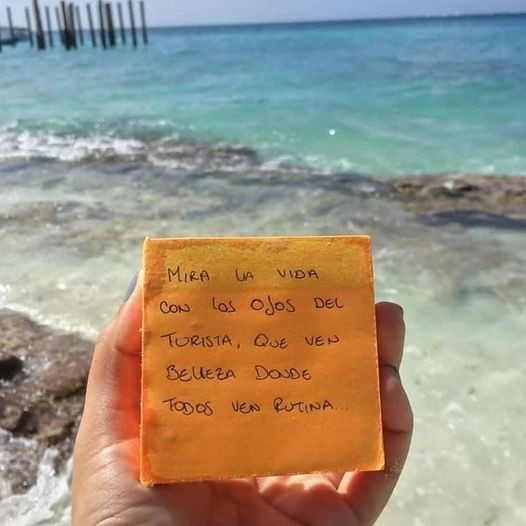 MIRA LA VIDA
CON LOS OJOS DEL
TURISTA, QUE VEN
BELLEZA DONDE
TODOS VEN RUTINA...